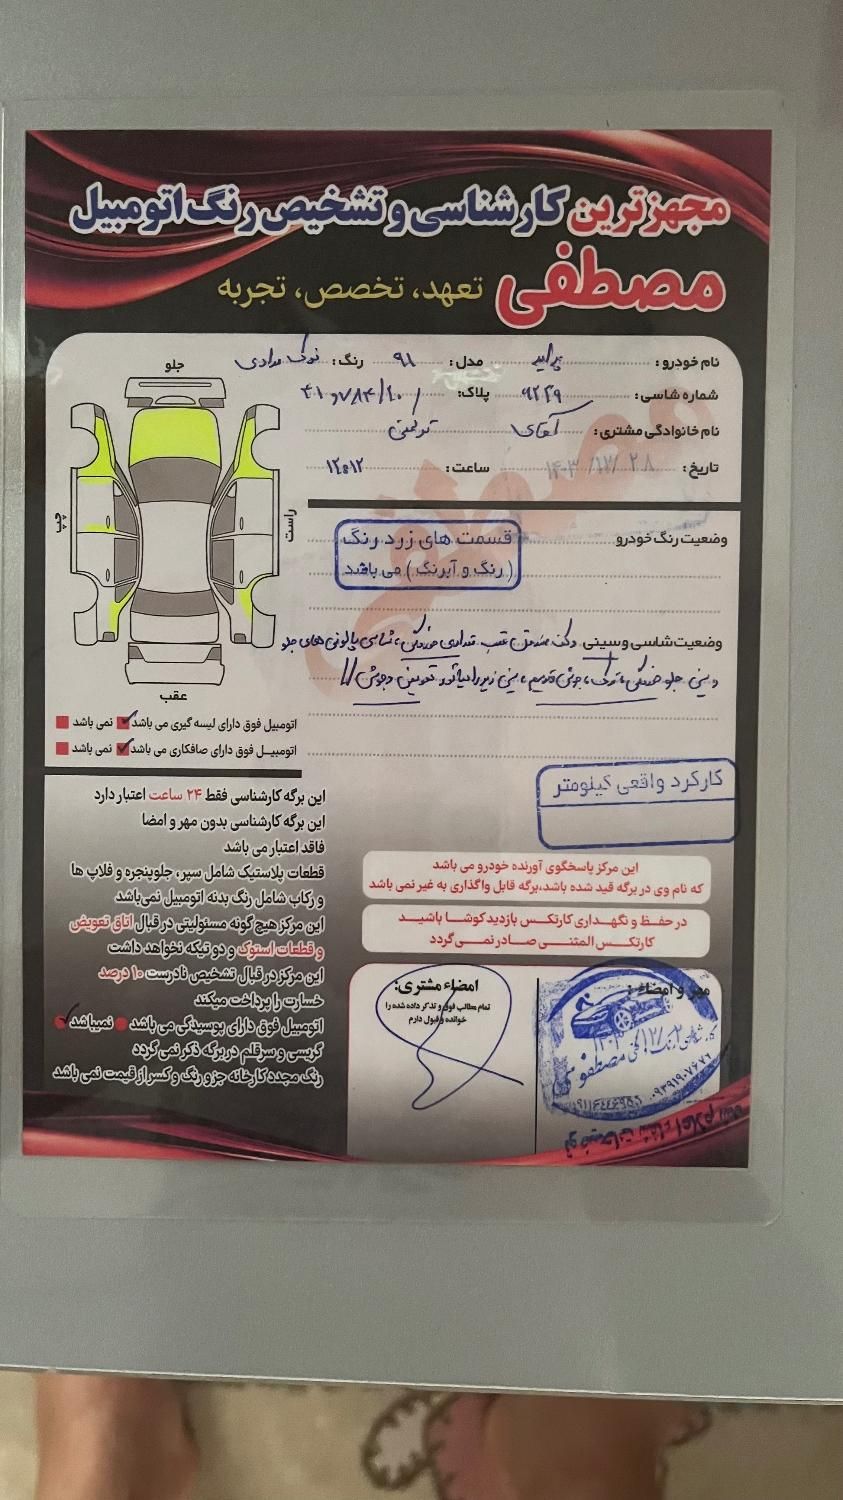 مجهزترین کارشناسی و تشخیص رنگ اتومبیل
مصطفی تعهد، تخصص، تجربه
نام خودرو : پراید مدل : ۹۱ رنگ : نوک مدادی
شماره شاسی : ۹۲۲۹ پلاک:
نام خانوادگی مشتری : آقای
تاریخ : ۱۴۰۳/۱۲/۲۸ ساعت : ۱۲:۱۲
جلو
چپ
راست
عقب
وضعیت رنگ خودرو
قسمت های زرد رنگ
( رنگ و آبرنگ ) می باشد
وضعیت شاسی و سینی عقب شاسی پالونی های جلو
سینی جلو جوش سینی زیر رادیاتور تعویض و جوش //
اتومبیل فوق دارای لیسه گیری می باشد نمی باشد
اتومبیل فوق دارای صافکاری می باشد نمی باشد
کارکرد واقعی کیلومتر
این برگه کارشناسی فقط ۲۴ ساعت اعتبار دارد
این برگه کارشناسی بدون مهر و امضا
فاقد اعتبار می باشد
قطعات پلاستیک شامل سپر، جلوپنجره و فلاپ ها
و رکاب شامل رنگ بدنه اتومبیل نمی‌باشد
این مرکز هیچ گونه مسئولیتی در قبال اتاق تعویض
و قطعات استوک و دو تیکه نخواهد داشت
این مرکز در قبال تشخیص نادرست ۱۰ درصد
خسارت را پرداخت میکند
اتومبیل فوق دارای پوسیدگی می باشد نمیباشد
گریسی و سرقلم در برگه ذکر نمی گردد
رنگ مجدد کارخانه جزو رنگ و کسر از قیمت نمی باشد
این مرکز پاسخگوی آورنده خودرو می باشد
که نام وی در برگه قید شده باشد،برگه قابل واگذاری به غیر نمی باشد
در حفظ و نگهداری کارتکس بازدید کوشا باشید
کارتکس المثنی صادر نمی گردد
امضاء مشتری:
تمام مطالب فوق و تذکر داده شده را
خوانده و قبول دارم
مهر و امضاء :
۱۴۰۳/۱۲/۲۸
مصطفی
۰۹۳۹۱۹۰۷۶۷۶